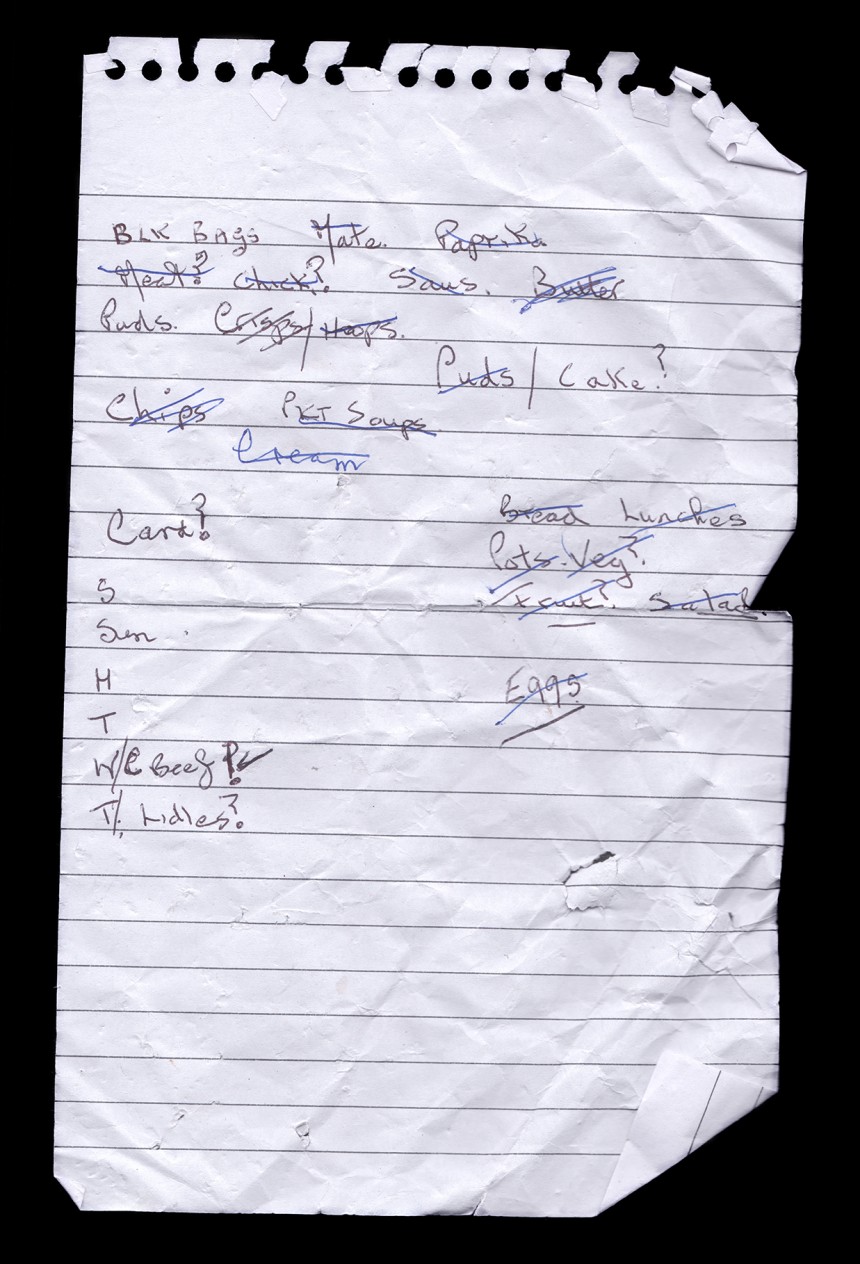 BLK BAgs Mate. Paprika
Meat? Chick? Saus. Butter
Puds. Crisps/Hoops.
Puds / Cake?
Chips PKT Soups
Cream
Card?
Bread Lunches
Pots. Veg?
Fruit? Salad.
S
Sun
M
T
W/C Beef?
T/. Lidles?
Eggs